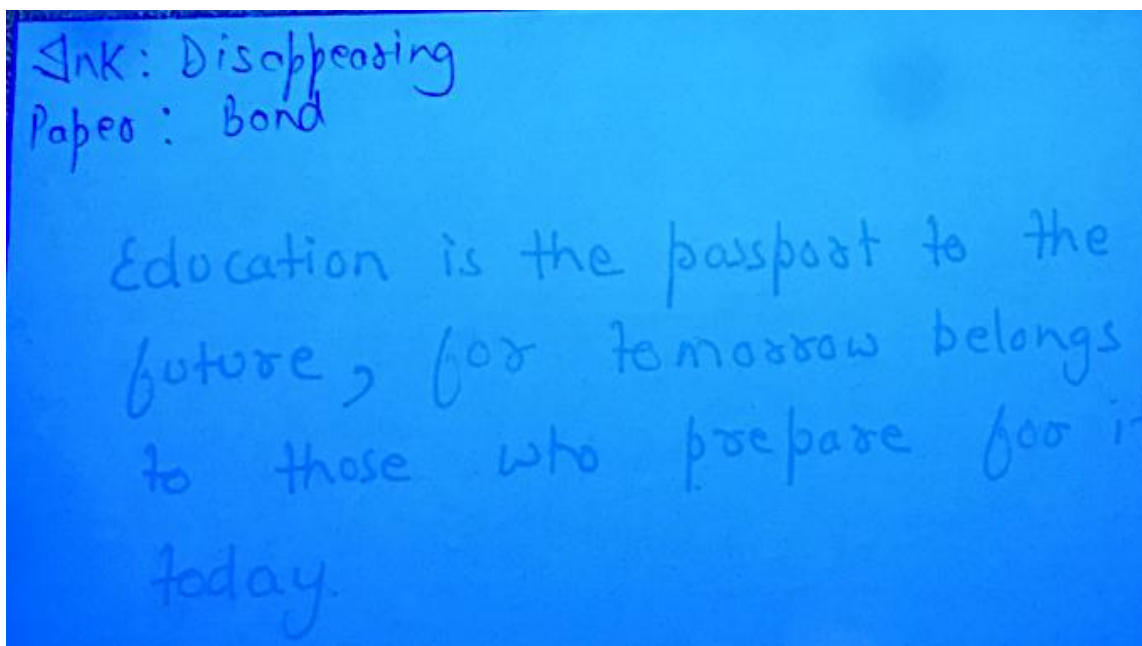 Ink: Disappearing
Paper: Bond
Education is the passport to the
future, for tomorrow belongs
to those who prepare for it
today.